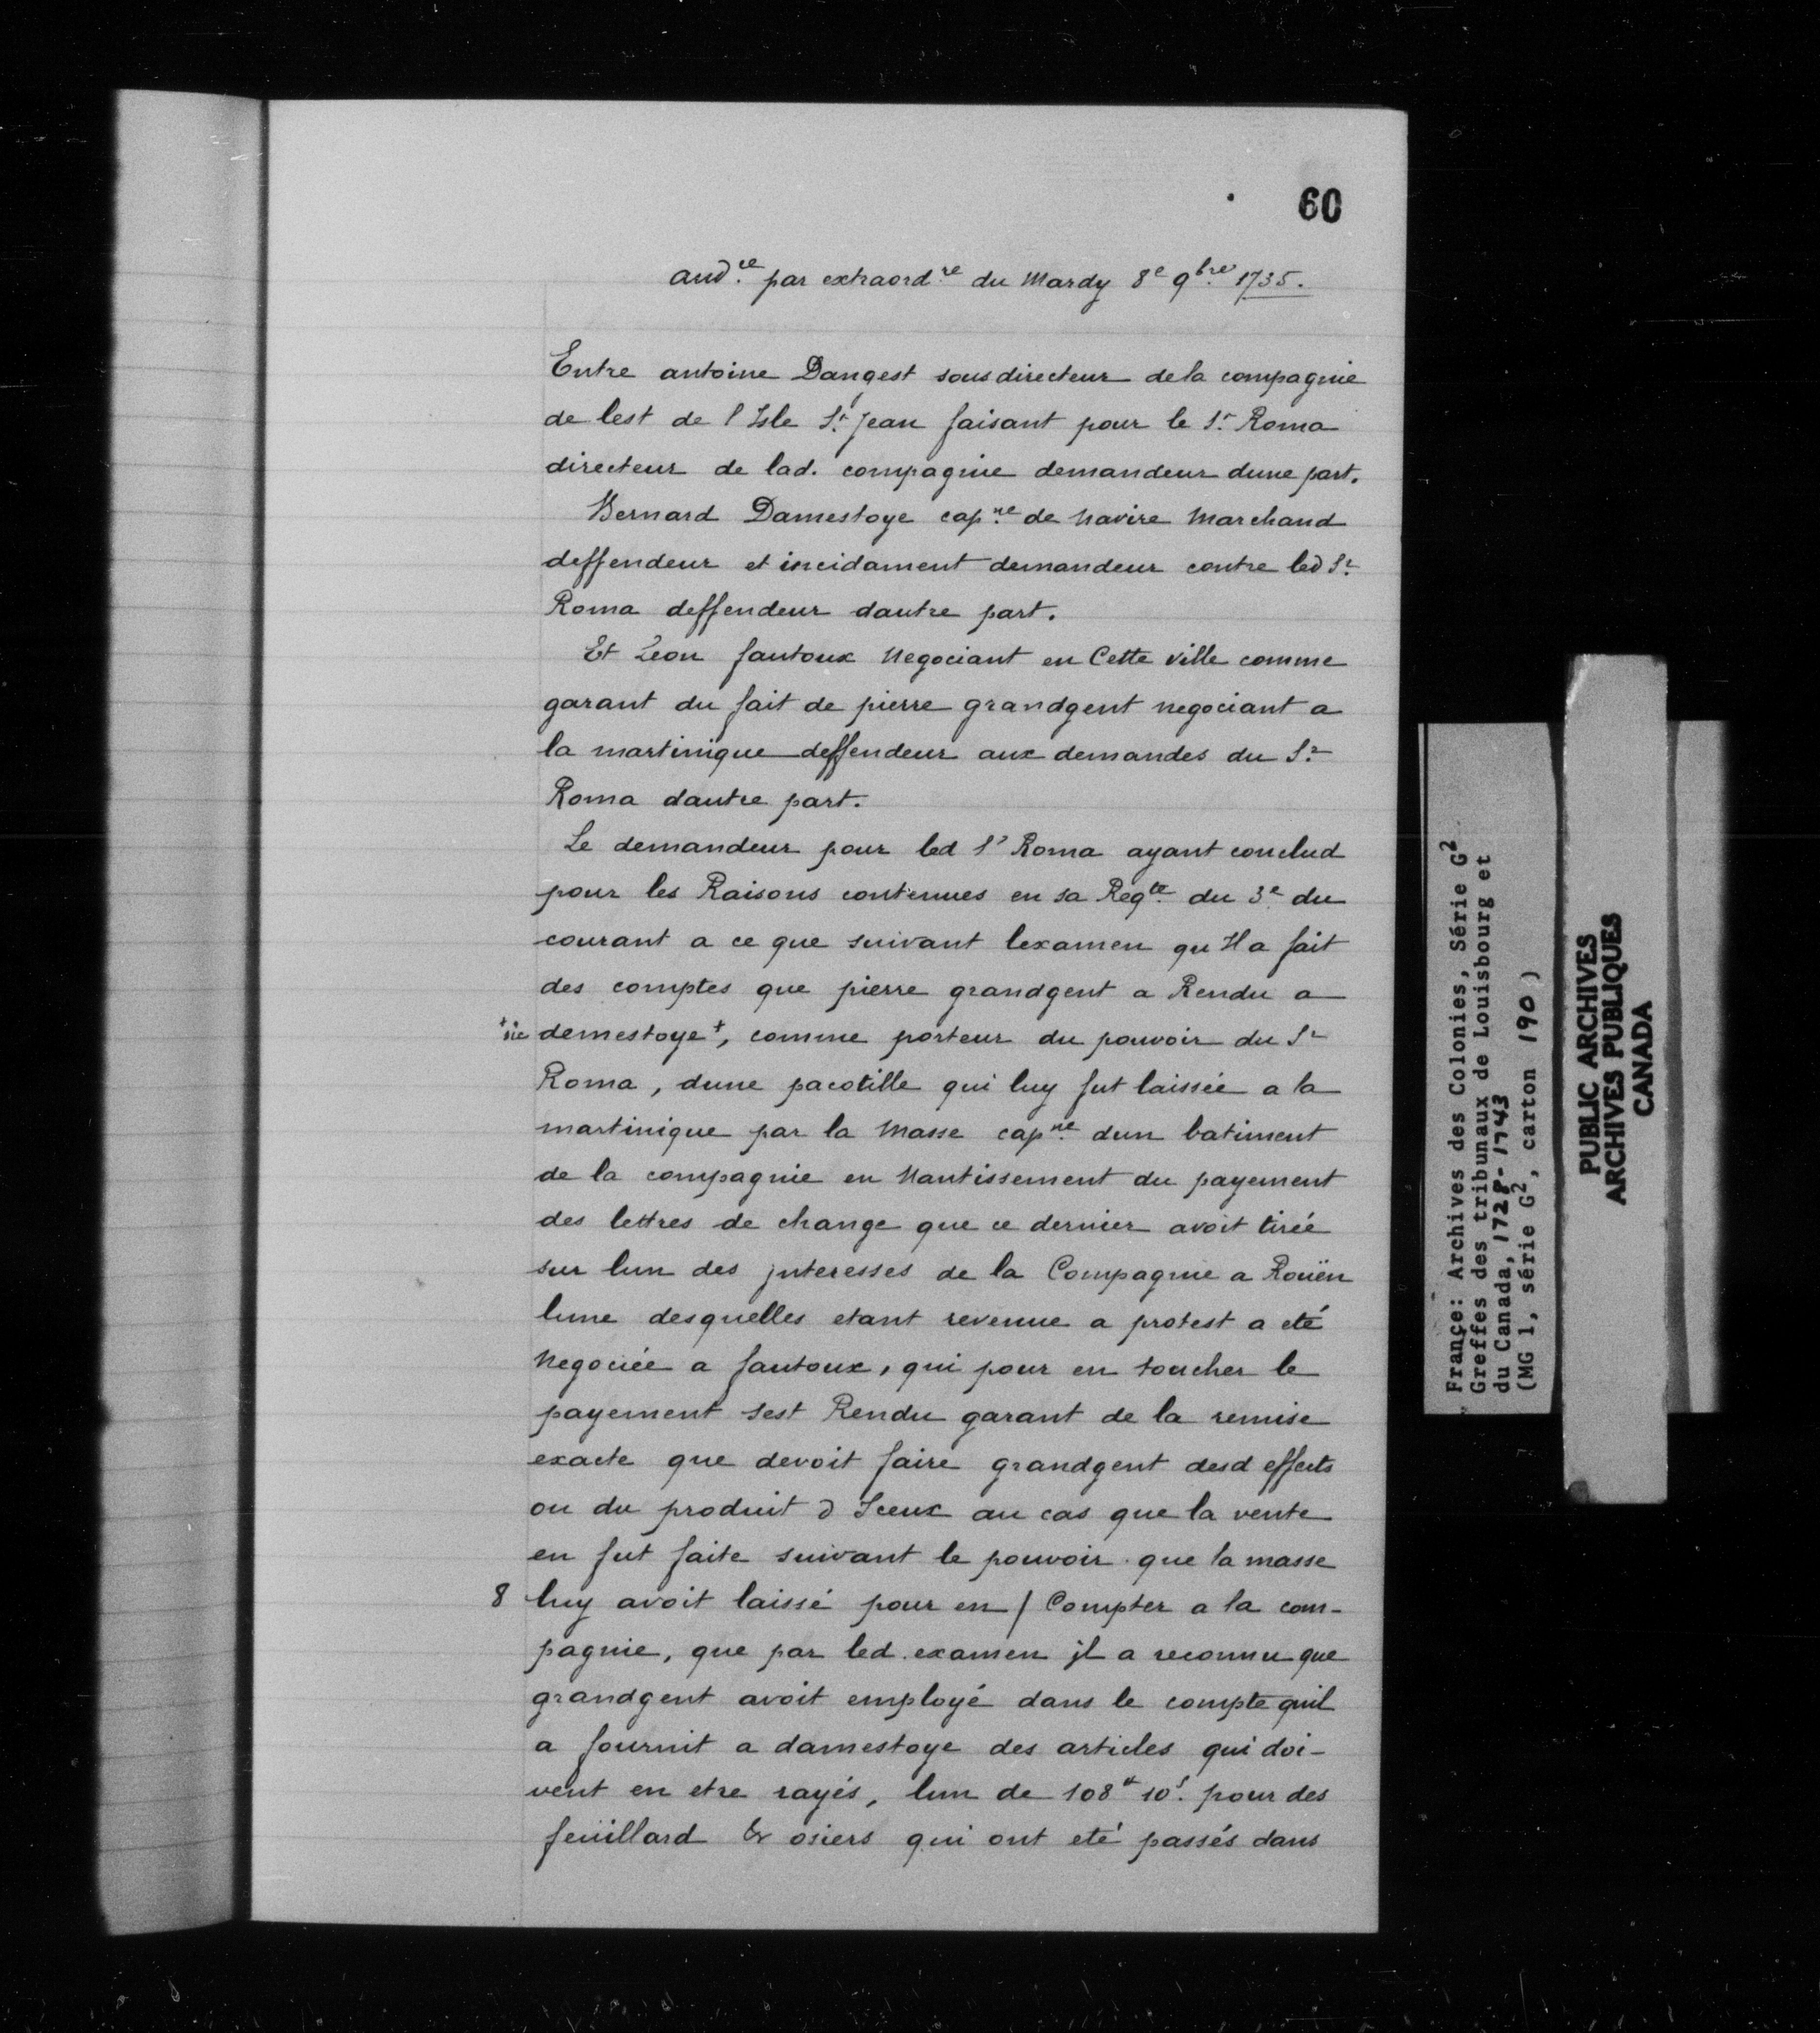 60
aud.ce par extraord.re du Mardy 8e 9bre. 1735.
Entre antoine Dangest sousdirecteur de la compagnie
de lest de l Isle St. Jean faisant pour le Sr. Roma
directeur de lad. compagnie demandeur dune part.
Bernard Damestoye cap.ne de Navire Marchand
deffendeur et incidament demandeur contre led Sr.
Roma deffendeur dautre part.
Et Leon fautoux Negociant en Cette ville comme
garant du fait de pierre grandgent negociant a
la martinique deffendeur aux demandes du Sr.
Roma dautre part.
Le demandeur pour led Sr Roma ayant conclud
pour les Raisons contenues en sa Reqte. du 3e du
courant a ce que suivant lexamen qu Il a fait
des comptes que pierre grandgent a Rendu a
+sic demestoye+, comme porteur du pouvoir du Sr
Roma, dune pacotille qui luy fut laissée a la
martinique par la Masse cap.ne dun batiment
de la compagnie en Nantissement du payement
des lettres de change que ce dernier avoit tirée
sur lun des jnteresses de la Compagnie a Roüen
lune desquelles etant revenue a protest a eté
Negociée a fautoux, qui pour en toucher le
payement sest Rendu garant de la remise
exacte que devoit faire grandgent desd effects
ou du produit d Iceux au cas que la vente
en fut faite suivant le pouvoir que la masse
8 luy avoit laissé pour en / Compter a la com-
pagnie, que par led. examen jl a reconnu que
grandgent avoit employé dans le compte quil
a fournit a damestoye des articles qui doi-
vent en etre rayés, lun de 108# 10s. pour des
feüillard & osiers qui ont eté passés dans
France: Archives des Colonies, Série G2
Greffes des tribunaux de Louisbourg et
du Canada, 1728-1743
(MG 1, série G2, carton 190)
PUBLIC ARCHIVES
ARCHIVES PUBLIQUES
CANADA